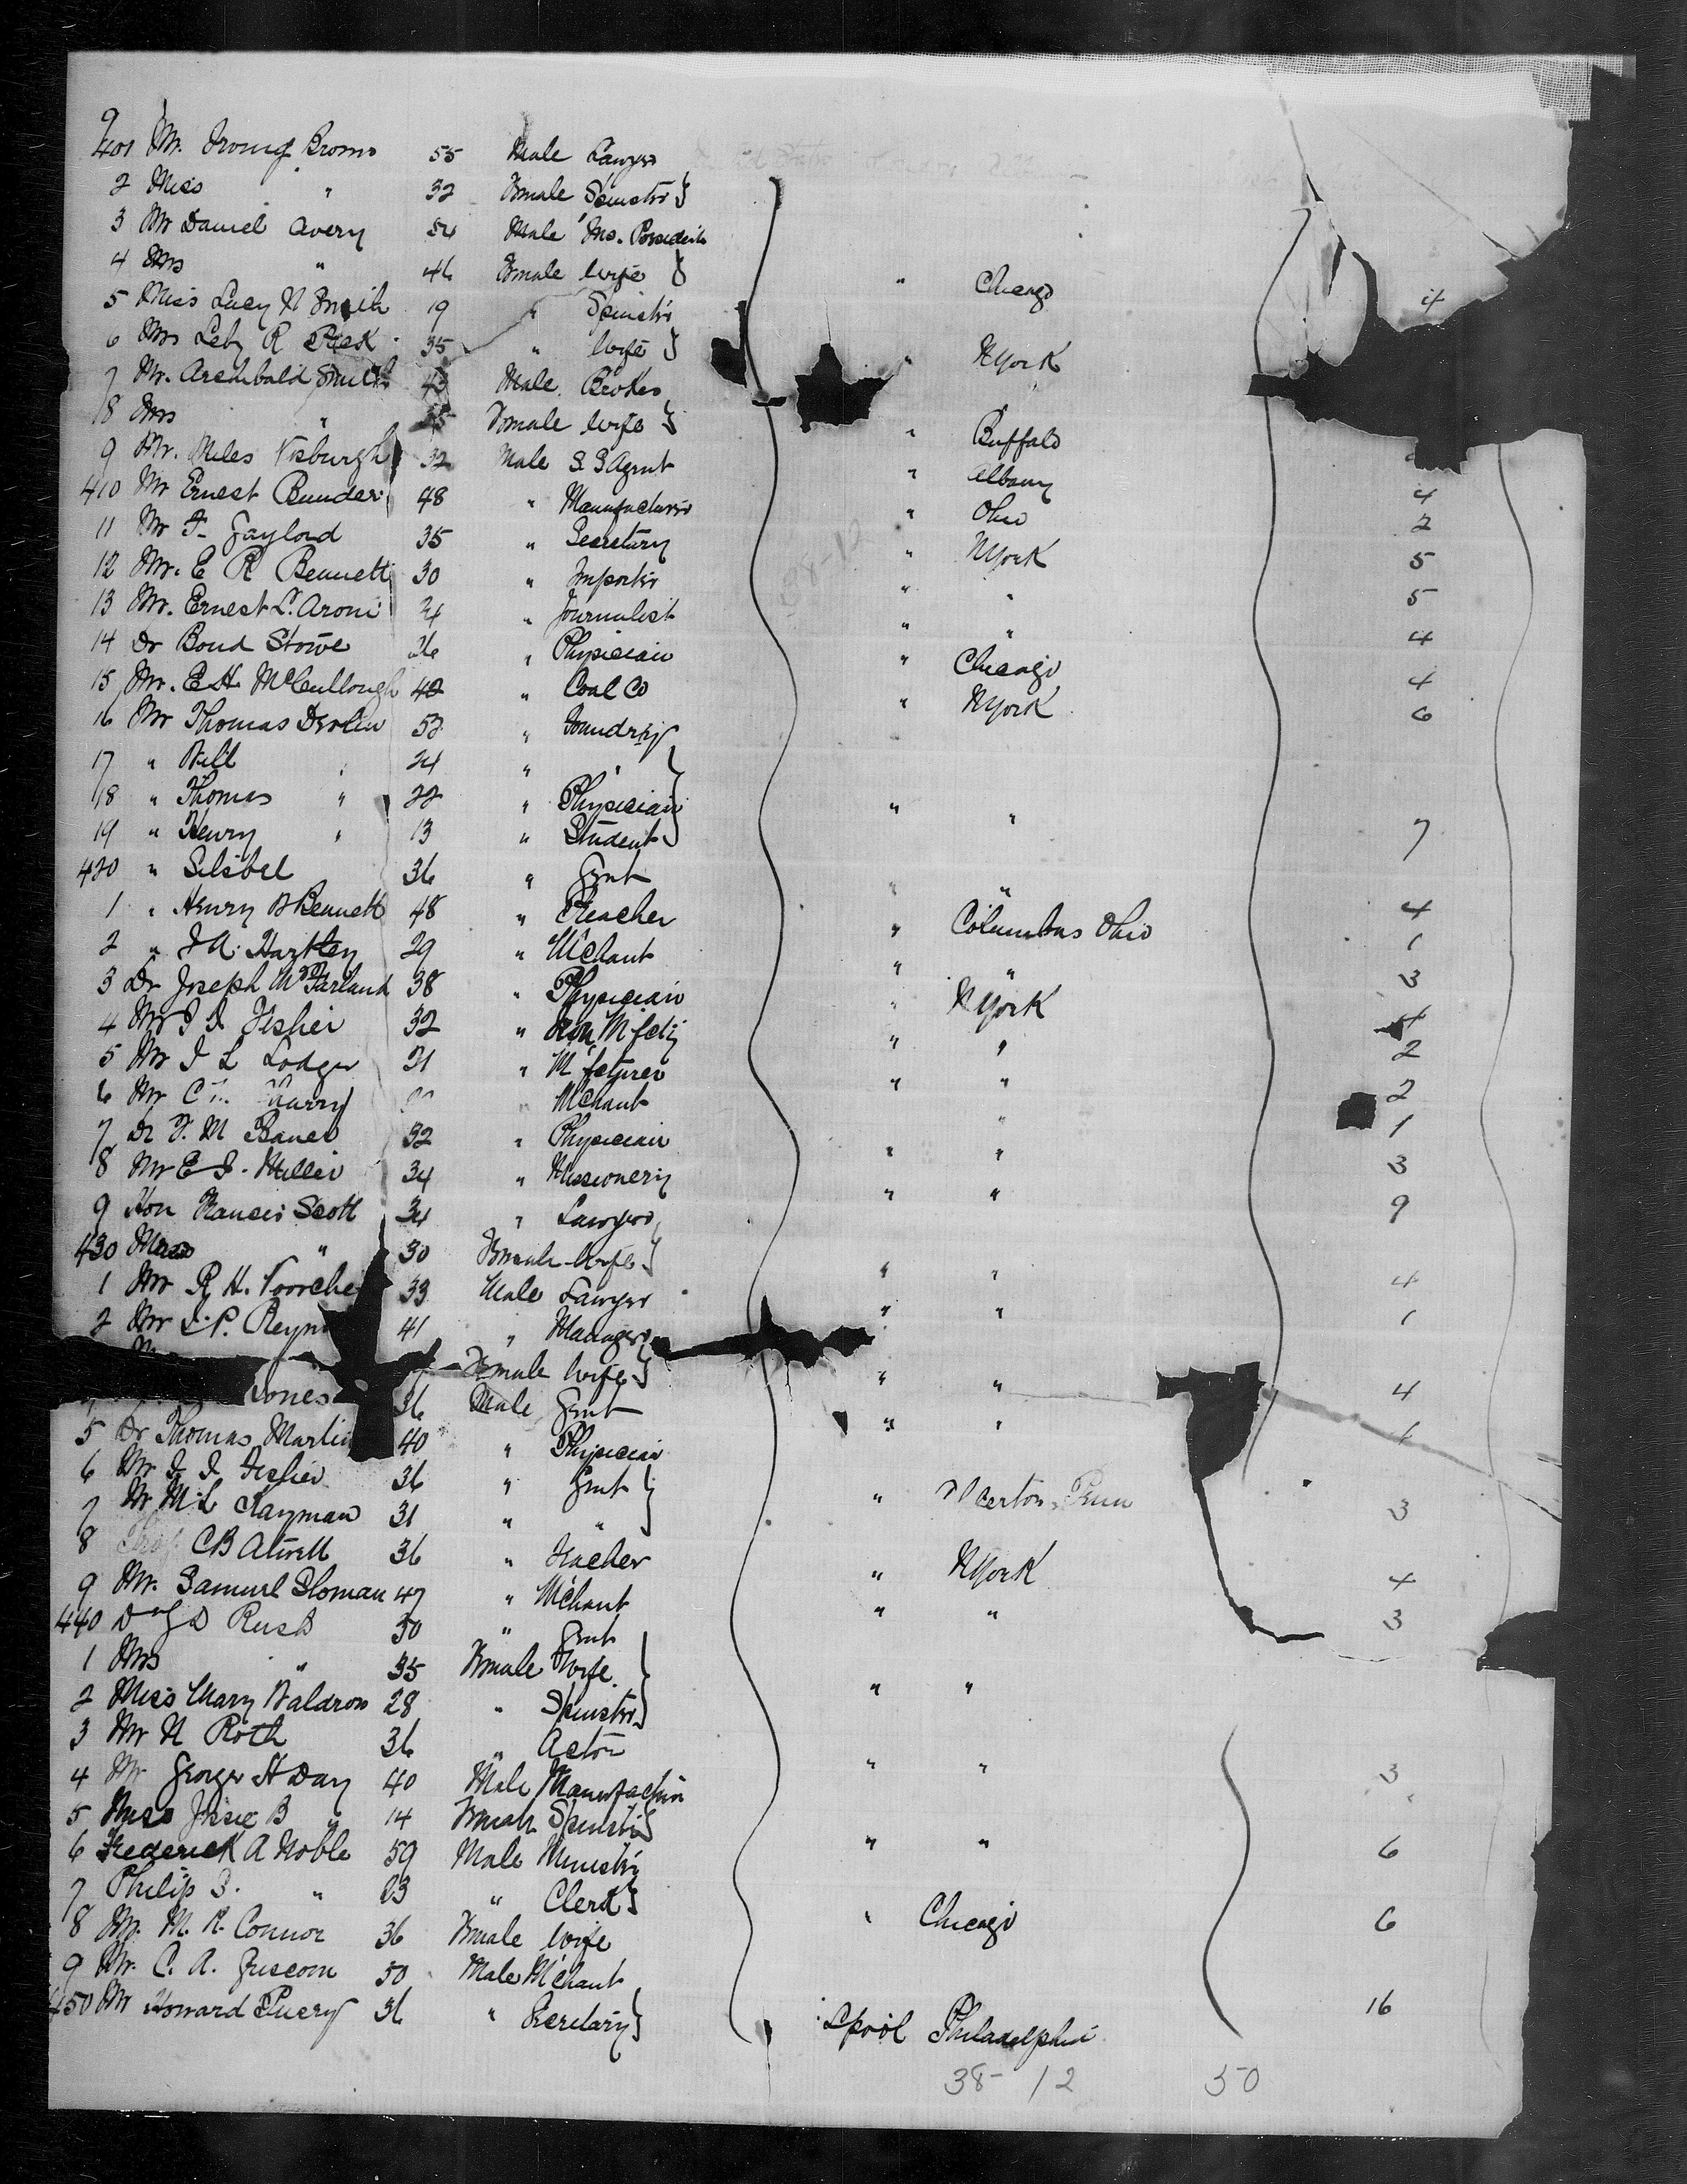 9
401 Mr. Irving Brown 55 Male Lawyer
2 Miss " 32 Female Spinster
3 Mr Daniel Avery 54 Male Ins. President
4 Mrs " 46 Female Wife " Chicago 4
5 Miss Lucy N Smith 19 " Spinster
6 Mrs R Peek 35 " Wife " NYork
7 Mr. Archibald Smith 43 Male Broker
8 Mrs " Female Wife " Buffalo
9 Mr. Miles Vosburgh 32 Male S.S Agent " Albany
410 Mr Ernest 48 " Manufacturer " Ohio 4
11 Mr F. Gaylord 35 " Secretary " NYork 2
12 Mr. E R Bennett 30 " Importer " " 5
13 Mr. Ernest L. Aroni " Journalist " " 5
14 Dr Bond Stowe 26 " Physician " Chicago 4
15 Mr. E H McCullough 42 " Coal Co " NYork 4
16 Mr Thomas Devlin 52 " Foundry 6
17 " Will 24 " "
18 " Thomas " 22 " Physician " "
19 " Henry " 13 " Student 7
420 " 36 " Gent " "
1 " Henry Bennett 48 " Teacher " Columbus Ohio 4
2 " J A. Hartley 29 " M'Chant " " 1
3 Dr Joseph McFarland 38 " Physician " NYork 3
4 Mr J J Fisher 32 " M'fctg " " 4
5 Mr J L Lodger 31 " M'fcturer " " 2
6 Mr C " M'Chant " 2
7 Dr F. M Bauer 32 " Physician " " 1
8 Mr E J. Miller 34 " Missionery " " 3
9 Hon Francis Scott 34 " Lawyer 9
430 Mrs " 30 Female Wife " "
1 Mr R H. Voorhe 33 Male Lawyer " " 4
2 Mr J. P. Reyn 41 " Manager 1
Female Wife " "
Jones 36 Male Gent " " 4
5 Dr Thomas Martin 40 " Physician 1
6 Mr J. J. Fisher 36 " Gent
7 Mr M. L Kayman 31 " " " Penn 3
8 Prof. C B Atwell 36 " Teacher " NYork 4
9 Mr. Samuel Sloman 47 " M'Chant " " 3
440 Rush 50 " Gent
1 Mrs " 35 Female Wife
2 Miss Mary Waldron 28 " Spinster " "
3 Mr N Roth 36 " Actor 3
4 Mr George H Day 40 Male Manufacturer " "
5 Miss Jessie B " 14 Female Spinster
6 Frederick A Noble 59 Male Minister " " 6
7 Philip S. " 23 " Clerk
8 Mr. M. R. Connor 36 Female Wife " Chicago 6
9 Mr. C. A. Griscom 50 Male M'Chant
450 Mr Howard 36 " Secretary L'pool Philadelphia 16
38-12 50